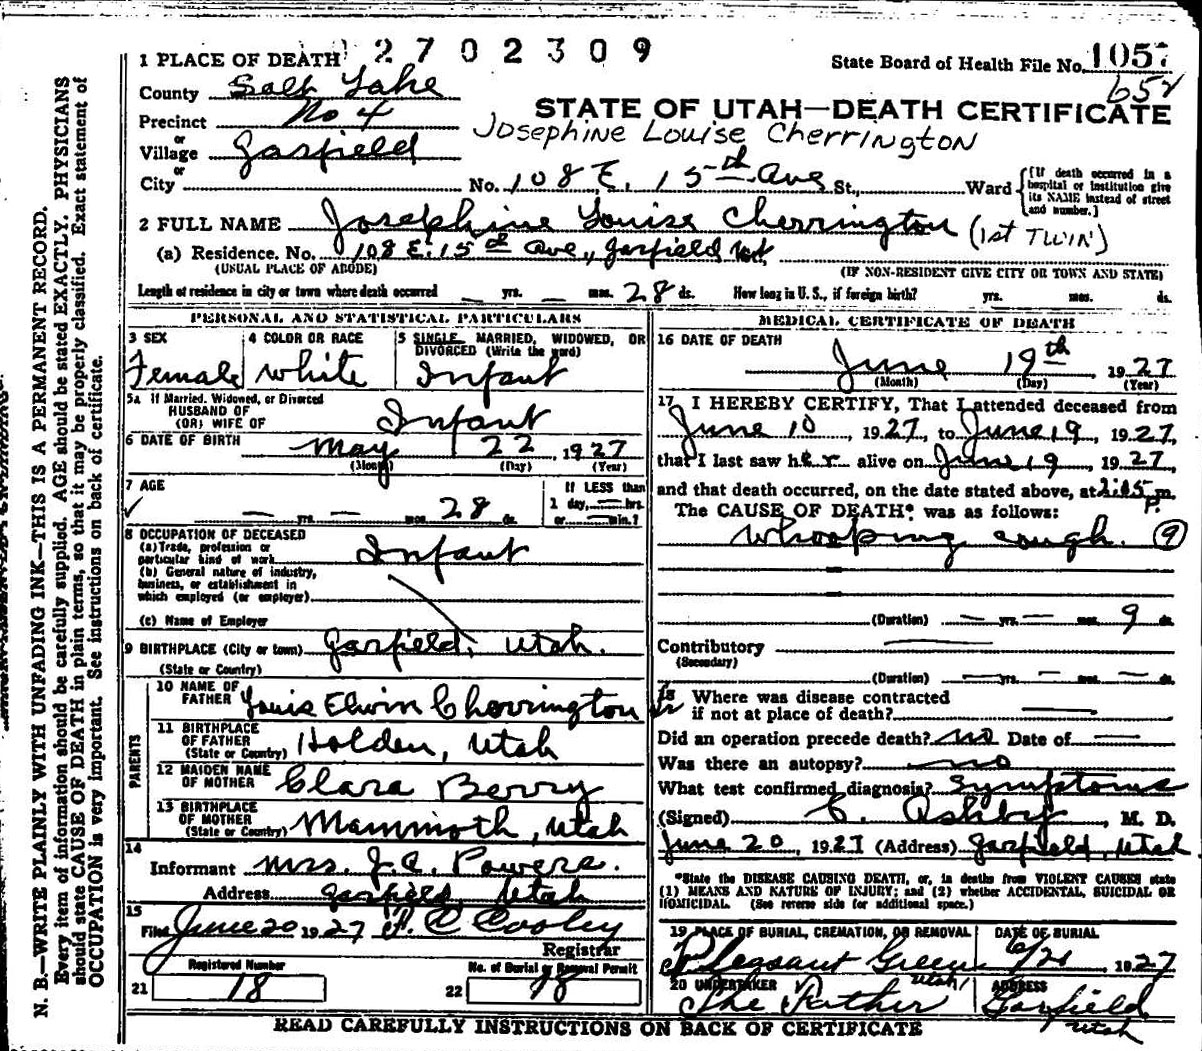 2702309
State Board of Health File No. 1057
652
1 PLACE OF DEATH
County Salt Lake
STATE OF UTAH—DEATH CERTIFICATE
Precinct No 4
or
Josephine Louise Cherrington
Village Garfield
or
City No. 108 E. 15th Ave St., Ward [If death occurred in a hospital or institution give its NAME instead of street and number.]
2 FULL NAME Josephine Louise Cherrington (1st TWIN)
(a) Residence. No. 108 E. 15th Ave., Garfield Ut.
(USUAL PLACE OF ABODE) (IF NON-RESIDENT GIVE CITY OR TOWN AND STATE)
Length of residence in city or town where death occurred — yrs. — mos. 28 ds. How long in U. S., if foreign birth? yrs. mos. ds.
PERSONAL AND STATISTICAL PARTICULARS
3 SEX 4 COLOR OR RACE 5 SINGLE, MARRIED, WIDOWED, OR DIVORCED (Write the word)
Female white Infant
5a If Married, Widowed, or Divorced
HUSBAND OF
(OR) WIFE OF Infant
6 DATE OF BIRTH May 22, 1927
(Month) (Day) (Year)
7 AGE If LESS than
— yrs. — mos. 28 ds. 1 day, — hrs.
or — min.?
8 OCCUPATION OF DECEASED
(a) Trade, profession or
particular kind of work Infant
(b) General nature of industry,
business, or establishment in
which employed (or employer)
(c) Name of Employer
9 BIRTHPLACE (City or town) Garfield, Utah.
(State or Country)
PARENTS
10 NAME OF FATHER Louis Elwin Cherrington
11 BIRTHPLACE OF FATHER (State or Country) Holden, Utah
12 MAIDEN NAME OF MOTHER Clara Berry
13 BIRTHPLACE OF MOTHER (State or Country) Mammoth, Utah
14
Informant Mrs. J. C. Powers.
Address Garfield, Utah
15
Filed June 20 1927 F. C. Cooley
Registrar
Registered Number No. of Burial or Removal Permit
21 18 22 18
MEDICAL CERTIFICATE OF DEATH
16 DATE OF DEATH
June 19th 1927
(Month) (Day) (Year)
17 I HEREBY CERTIFY, That I attended deceased from
June 10, 1927, to June 19, 1927,
that I last saw her alive on June 19, 1927,
and that death occurred, on the date stated above, at 2:15 P. m.
The CAUSE OF DEATH* was as follows:
Whooping cough. 9
(Duration) — yrs. — mos. 9 ds.
Contributory
(Secondary)
(Duration) — yrs. — mos. — ds.
18 Where was disease contracted
if not at place of death? —
Did an operation precede death? no Date of —
Was there an autopsy? no
What test confirmed diagnosis? Symptoms
(Signed) C. Ashby, M. D.
June 20, 1927 (Address) Garfield, Utah
*State the DISEASE CAUSING DEATH, or, in deaths from VIOLENT CAUSES state
(1) MEANS AND NATURE OF INJURY; and (2) whether ACCIDENTAL, SUICIDAL OR
HOMICIDAL. (See reverse side for additional space.)
19 PLACE OF BURIAL, CREMATION, OR REMOVAL DATE OF BURIAL
Pleasant Green Utah, 6/21, 1927
20 UNDERTAKER ADDRESS
The Father Garfield Utah
READ CAREFULLY INSTRUCTIONS ON BACK OF CERTIFICATE
N. B.—WRITE PLAINLY WITH UNFADING INK—THIS IS A PERMANENT RECORD.
Every item of information should be carefully supplied. AGE should be stated EXACTLY. PHYSICIANS
should state CAUSE OF DEATH in plain terms, so that it may be properly classified. Exact statement of
OCCUPATION is very important. See instructions on back of certificate.